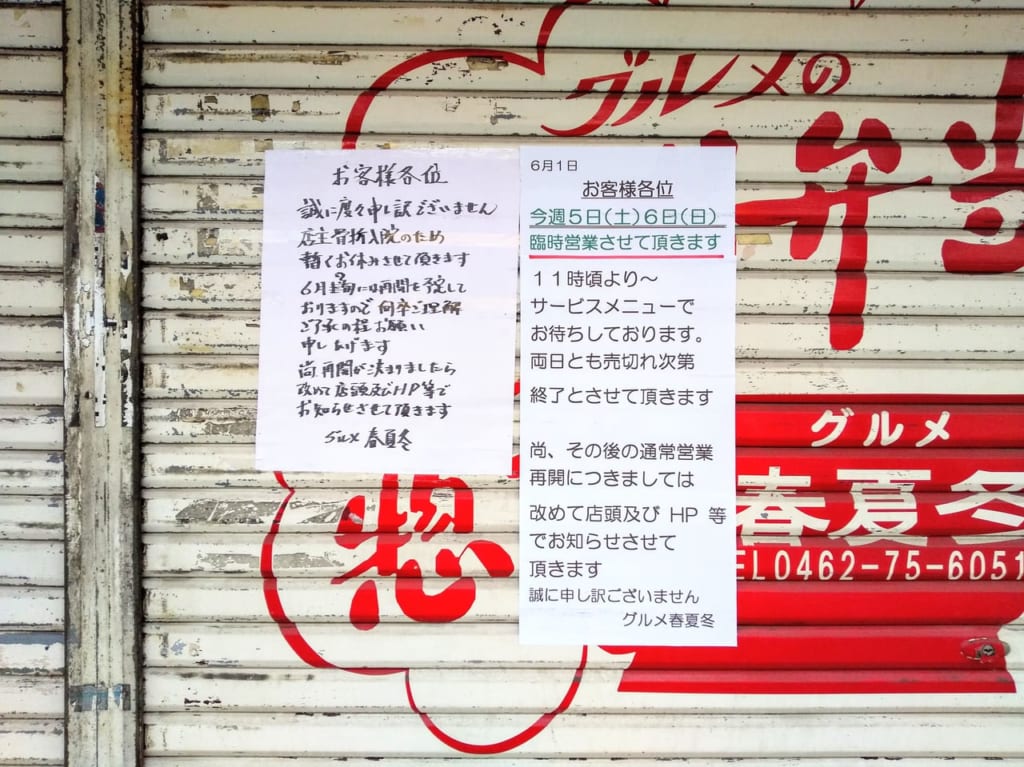 グルメの
弁当
お客様各位
誠に度々申し訳ございません
店主骨折入院のため
暫くお休みさせて頂きます
6月上旬には再開を予定して
おりますので 何卒ご理解
ご了承の程お願い
申し上げます
尚、再開が決まりましたら
改めて店頭及びHP等で
お知らせさせて頂きます
グルメ 春夏冬
6月1日
お客様各位
今週5日(土)6日(日)
臨時営業させて頂きます
11時頃より〜
サービスメニューで
お待ちしております。
両日とも売切れ次第
終了とさせて頂きます
尚、その後の通常営業
再開につきましては
改めて店頭及び HP 等
でお知らせさせて
頂きます
誠に申し訳ございません
グルメ春夏冬
惣
グルメ
春夏冬
EL0462-75-6051